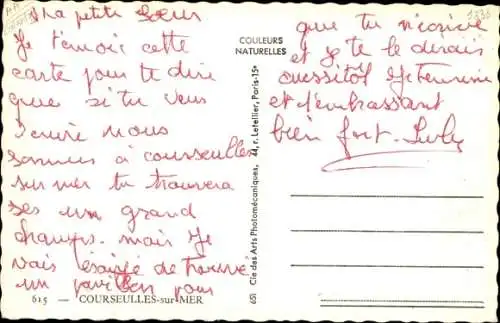 Ma petite Sœur
Je t'envoie cette
carte pour te dire
que si tu veus
t'écrire nous
sommes à courseulles
sur mer tu trouvera
ses un grand
champs. mais je
vais essaiée de trouvé
un pavillon pour
615 — COURSEULLES-sur-MER
COULEURS
NATURELLES
651 Cie des Arts Photomécaniques, 44, r. Letellier, Paris-15e
que tu
et je te le dirais
aussitôt je termine
et t'embrassant
bien fort.